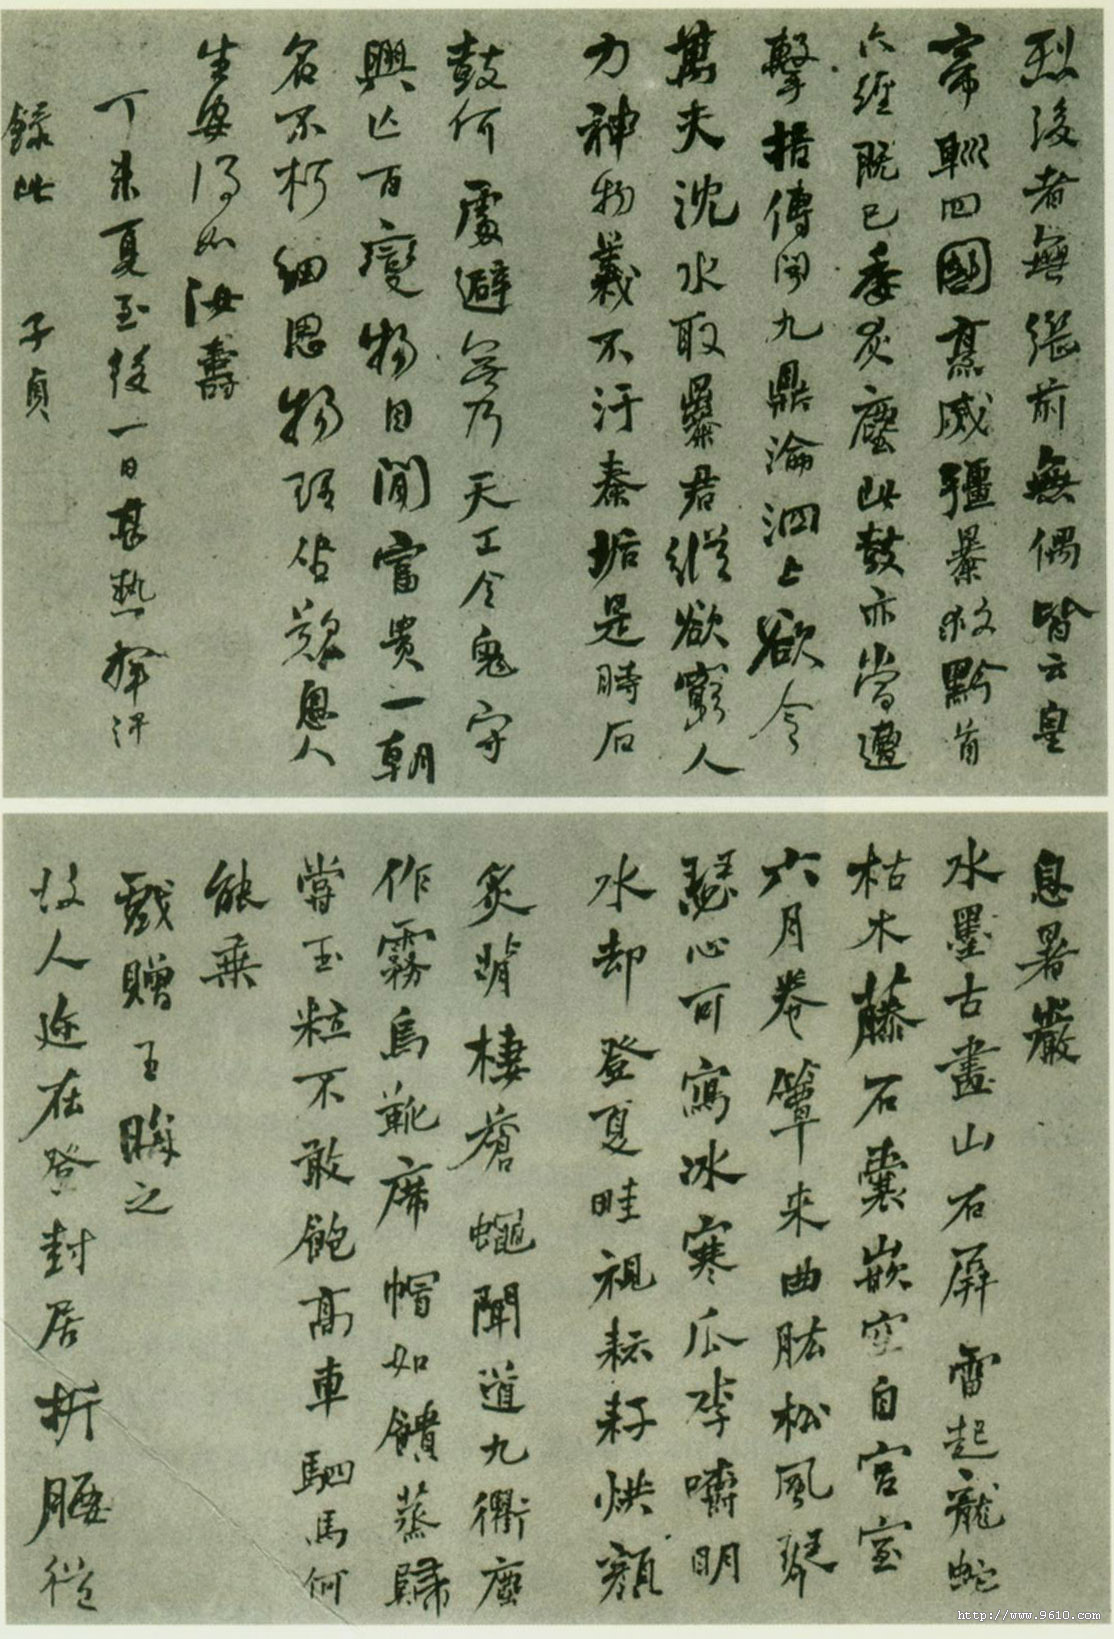 烈後者無繼前無偶皆云皇
帝巡四國烹滅彊暴救黔首
六經既已委灰塵此鼓亦當遭
擊掊傳聞九鼎淪泗上欲令
萬夫沈水取暴君縱欲窮人
力神物義不汙秦垢是時石
鼓何處避無乃天工令鬼守
興亡百變物自閒富貴一朝
名不朽細思物理坐歎息人
生安得如汝壽
丁未夏至後一日甚熱揮汗
錄此 子貞
息暑巖
水墨古畫山石屏雷起龍蛇
枯木藤石囊嵌空自宮室
六月卷簟来曲肱松風琴
瑟心可寫冰寒瓜李嚼明
水却登夏畦視耘耔烘顏
炙背棲瘡蠅聞道九衢塵
作霧烏靴席帽如饙蒸歸
嘗玉粒不敢飽高車駟馬何
能乘
戲贈王晦之
故人近在登封居折腰從
http://www.9610.com